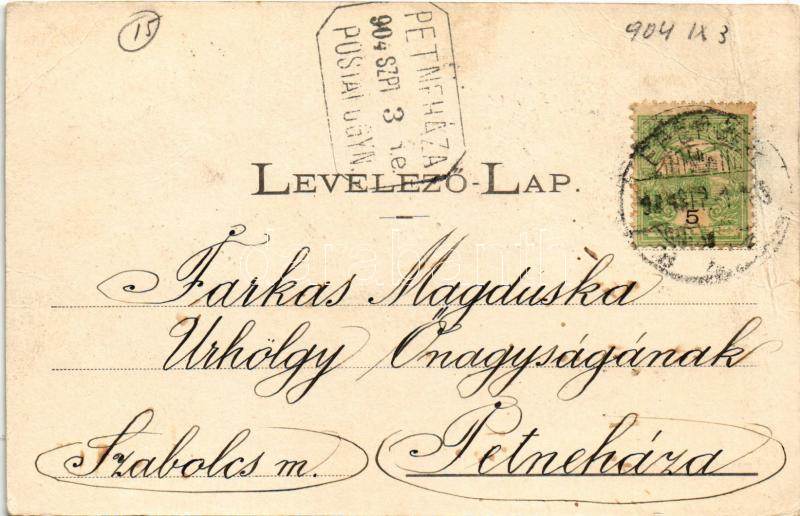 15
904 IX 3
PETNEHÁZA
904 SZPT 3
POSTAI ÜGYN
LEVELEZŐ-LAP.
5
darabanth
Farkas Magduska
Urhölgy Őnagyságának
Szabolcs m.
Petneháza